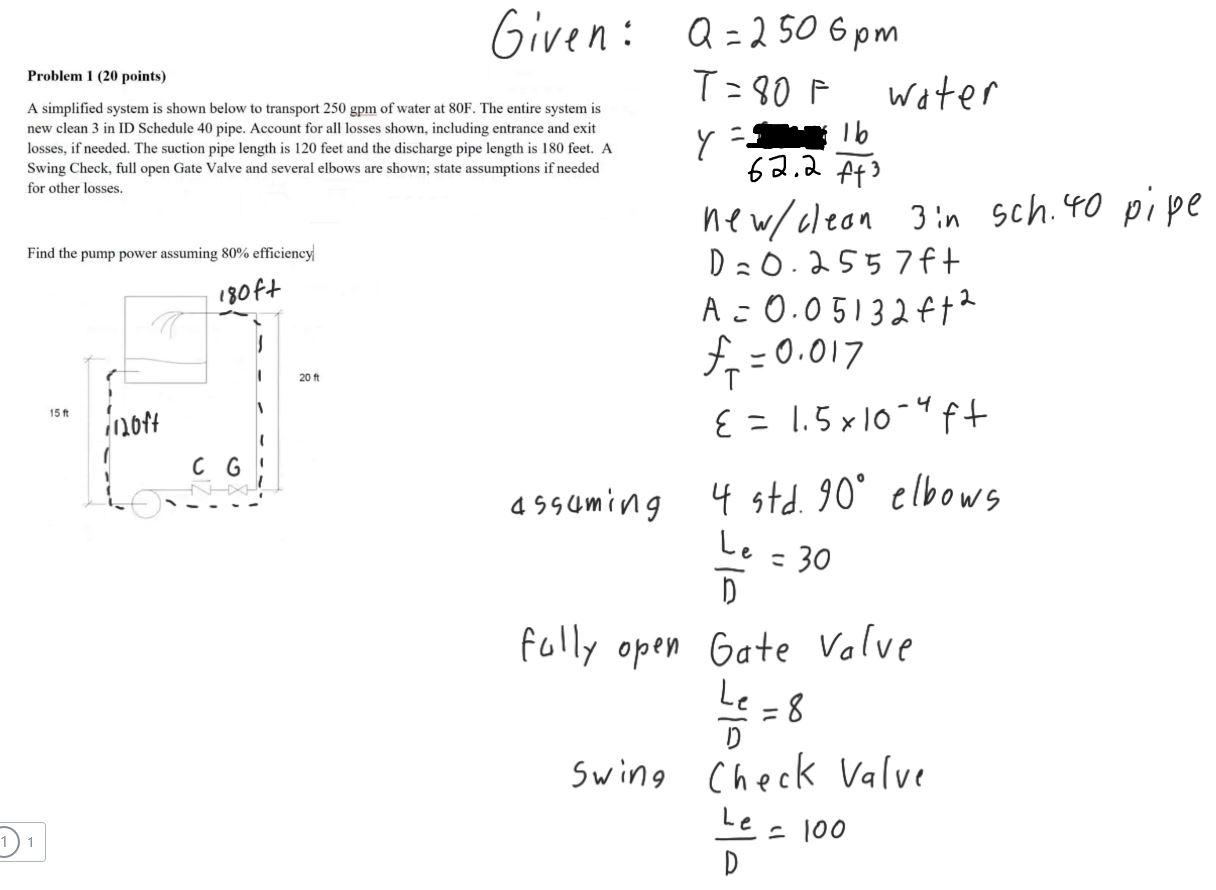 Given: Q = 250 Gpm
T = 80 F water
γ = lb/ft³
62.2
new/clean 3 in sch. 40 pipe
D = 0.2557 ft
A = 0.05132 ft²
f_T = 0.017
ε = 1.5 x 10⁻⁴ ft
assuming 4 std. 90° elbows
Le/D = 30
fully open Gate Valve
Le/D = 8
Swing Check Valve
Le/D = 100
Problem 1 (20 points)
A simplified system is shown below to transport 250 gpm of water at 80F. The entire system is
new clean 3 in ID Schedule 40 pipe. Account for all losses shown, including entrance and exit
losses, if needed. The suction pipe length is 120 feet and the discharge pipe length is 180 feet. A
Swing Check, full open Gate Valve and several elbows are shown; state assumptions if needed
for other losses.
Find the pump power assuming 80% efficiency
180ft
20 ft
15 ft
120ft
C G
1 1